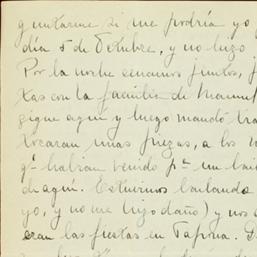 guntarme si me podría yo
día 5 de Octubre, y no hizo
Por la noche cenamos juntos,
con la familia de Manuel
sigue aquí y luego mandó
tocaran unas piezas, a los
qᵉ habían venido pᵃ un
de aquí. Estuvimos bailando
yo, y no me hizo daño) y nos
eran las fiestas en Tafira.